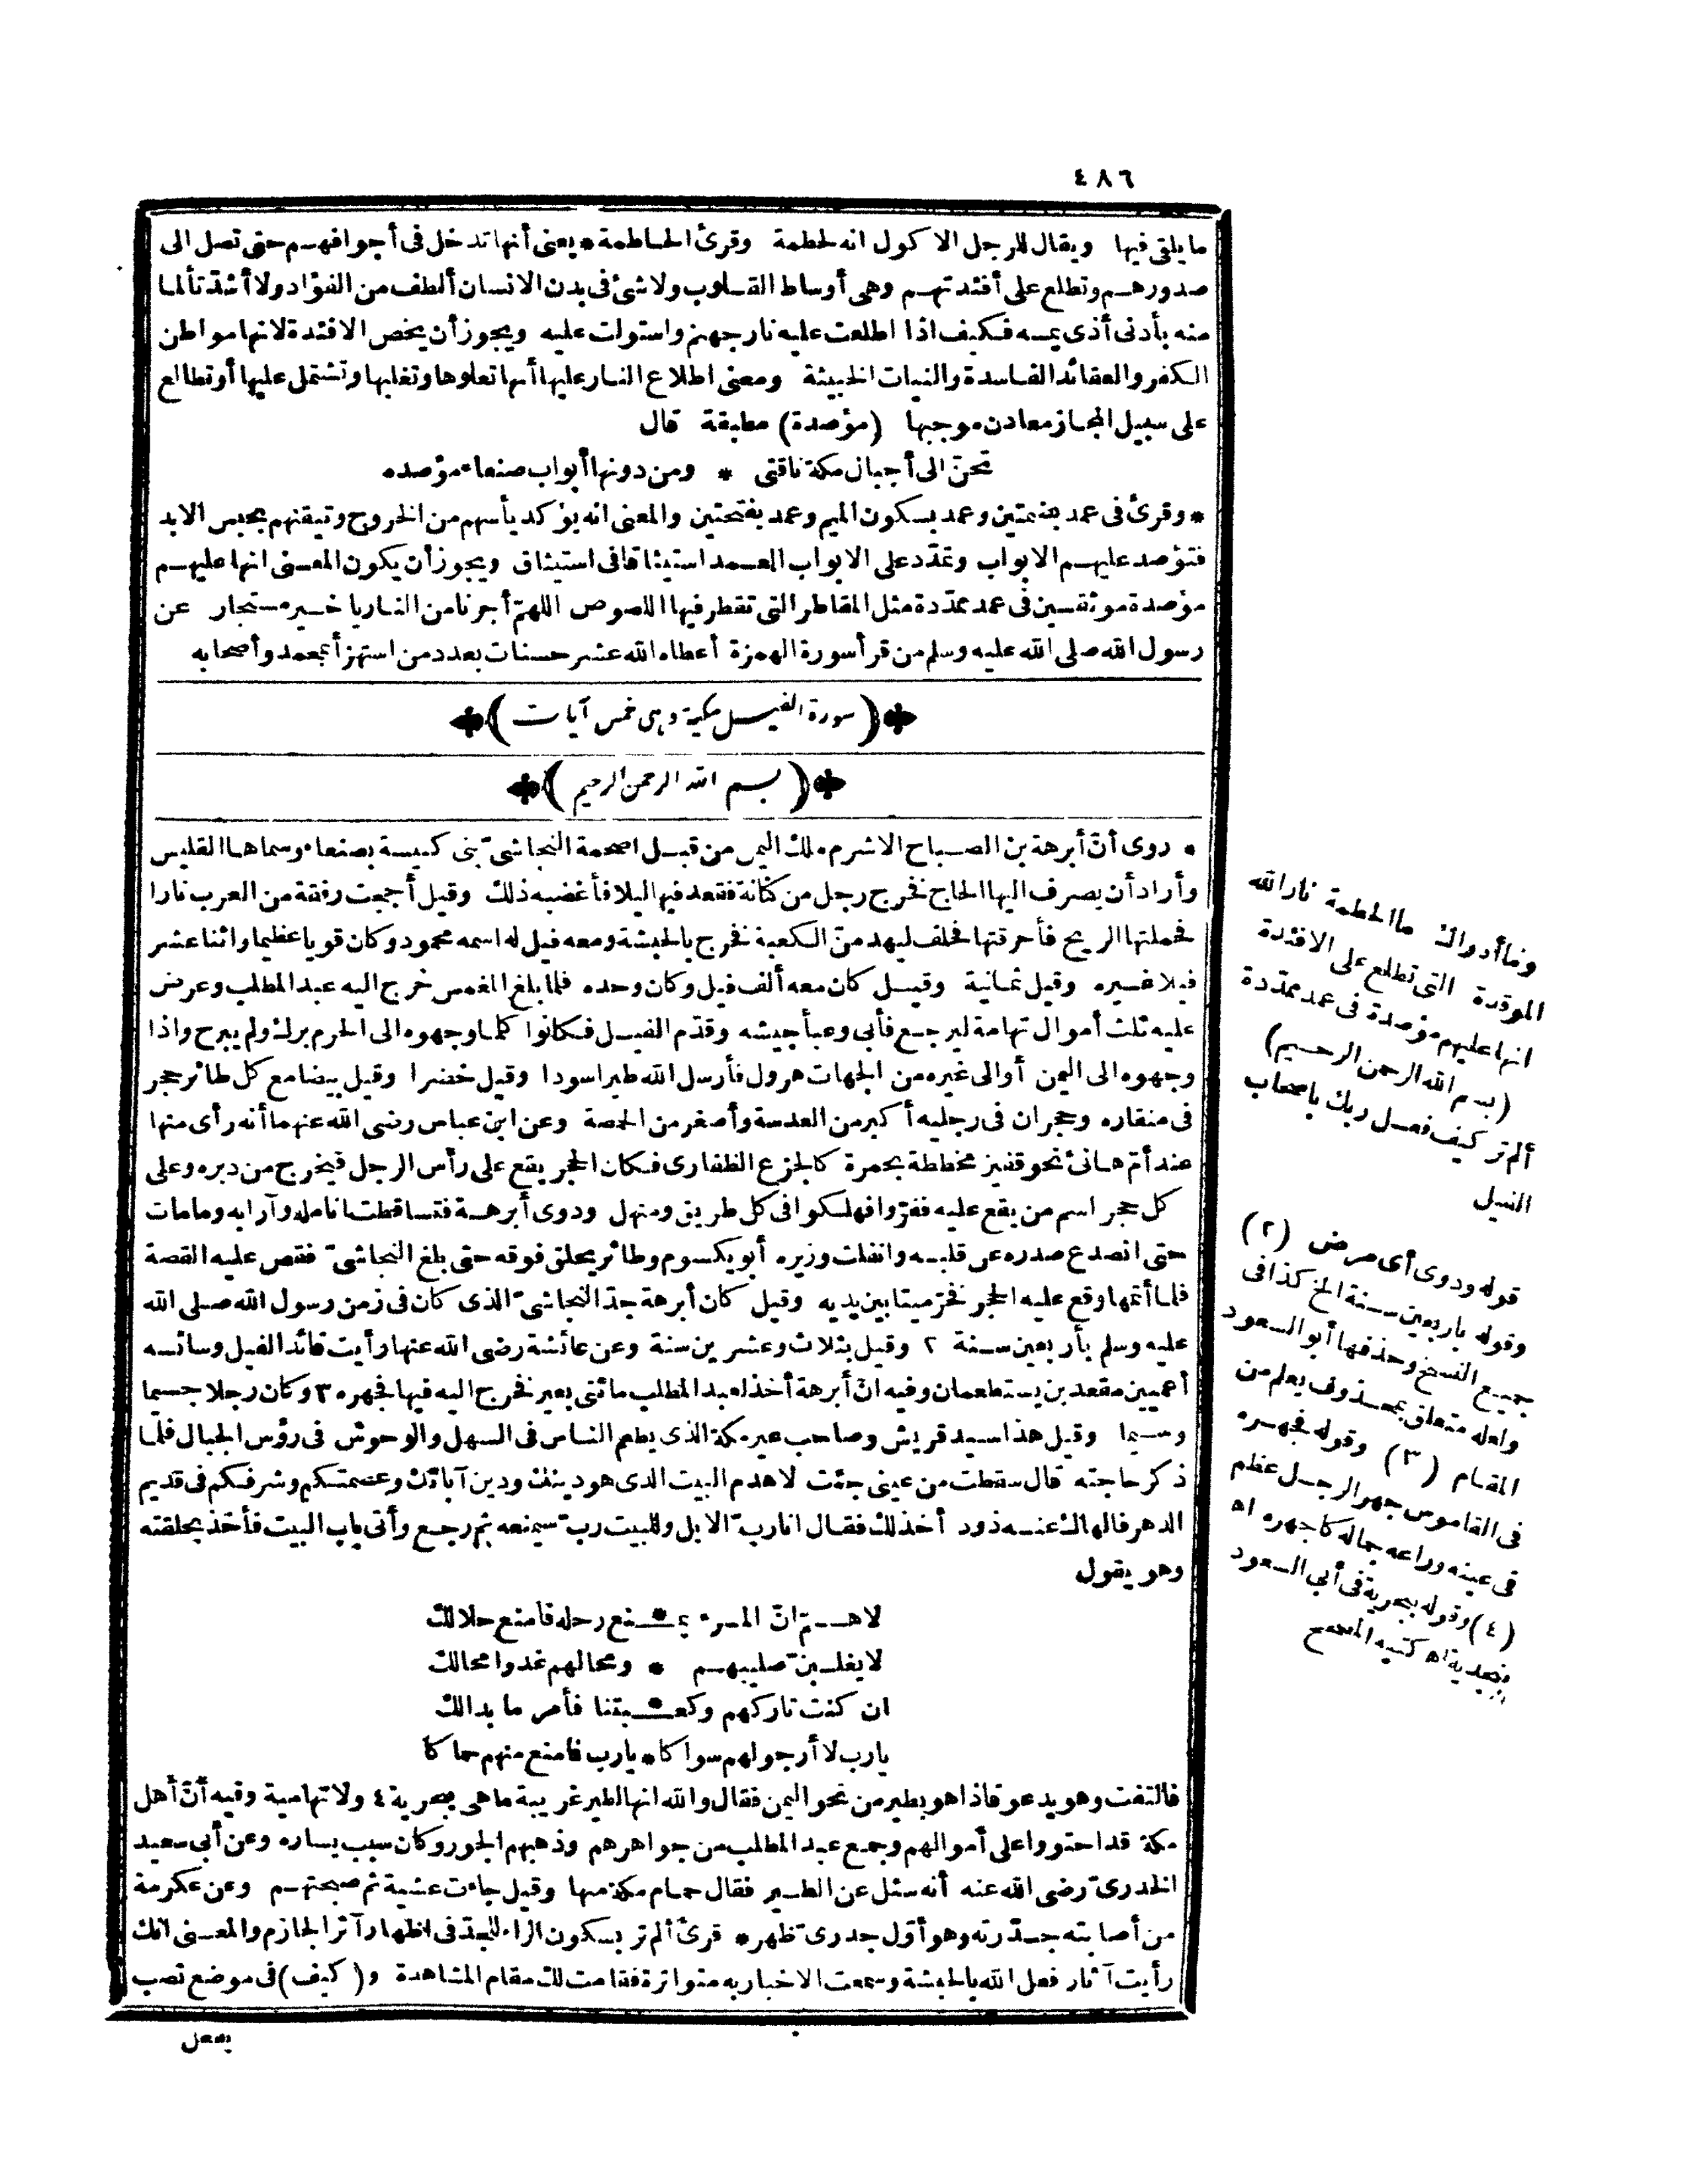 ٤٨٦
ما يلقى فيها ويقال للرجل الاكول انه لحطمة وقرئ الحاطمة * يعنى أنها تدخل فى أجوافهم حتى تصل الى
صدورهم وتطلع على أفئدتهم وهى أوساط القلوب ولا شئ فى بدن الانسان ألطف من الفؤاد ولا أشدّ تألما
منه بأدنى أذى يمسه فكيف اذا اطلعت عليه نار جهنم واستولت عليه ويجوز أن يخص الافئدة لانها مواطن
الكفر والعقائد الفاسدة والنيات الخبيثة ومعنى اطلاع النار عليها أنها تعلوها وتغلبها وتشتمل عليها أو تطالع
على سبيل المجاز معادن موجبها (مؤصدة) مطبقة قال
تحنّ الى أجبال مكة ناقتى * ومن دونها أبواب صنعاء مؤصده
* وقرئ فى عمد بضمتين وعمد بسكون الميم وعمد بفتحتين والمعنى انه يؤكد يأسهم من الخروج وتيقنهم بحبس الابد
فتؤصد عليهم الابواب وتمدّد على الابواب العمد استيثاقا فى استيثاق ويجوز أن يكون المعنى انها عليهم
مؤصدة موثقين فى عمد ممدّدة مثل المقاطر التى تقطر فيها اللصوص اللهمّ أجرنا من النار يا خير مستجار عن
رسول الله صلى الله عليه وسلم من قرأ سورة الهمزة أعطاه الله عشر حسنات بعدد من استهزأ بمحمد وأصحابه
(سورة الفيل مكية وهى خمس آيات)
(بسم الله الرحمن الرحيم)
* روى أنّ أبرهة بن الصباح الاشرم ملك اليمن من قبل اصحمة النجاشىّ بنى كنيسة بصنعاء وسماها القليس
وأراد أن يصرف اليها الحاج فخرج رجل من كنانة فقعد فيها ليلا فأغضبه ذلك وقيل أججت رفقة من العرب نارا
فحملتها الريح فأحرقتها فحلف ليهدمنّ الكعبة فخرج بالحبشة ومعه فيل له اسمه محمود وكان قويا عظيما واثنا عشر
فيلا غيره وقيل ثمانية وقيل كان معه ألف فيل وكان وحده فلما بلغ المغمس خرج اليه عبد المطلب وعرض
عليه ثلث أموال تهامة ليرجع فأبى وعبأ جيشه وقدّم الفيل فكانوا كلما وجهوه الى الحرم برك ولم يبرح واذا
وجهوه الى اليمن أو الى غيره من الجهات هرول فأرسل الله طيرا سودا وقيل خضرا وقيل بيضا مع كل طائر حجر
فى منقاره وحجران فى رجليه أكبر من العدسة وأصغر من الحمصة وعن ابن عباس رضى الله عنهما أنه رأى منها
عند أمّ هانئ نحو قفيز مخططة بحمرة كالجزع الظفارى فكان الحجر يقع على رأس الرجل فيخرج من دبره وعلى
كل حجر اسم من يقع عليه ففرّوا فهلكوا فى كل طريق ومنهل ودوى أبرهة فتساقطت انامله وآرابه وما مات
حتى انصدع صدره عن قلبه وانفلت وزيره أبو يكسوم وطائر يحلق فوقه حتى بلغ النجاشىّ فقص عليه القصة
فلما أتمها وقع عليه الحجر فخرّ ميتا بين يديه وقيل كان أبرهة جدّ النجاشىّ الذى كان فى زمن رسول الله صلى الله
عليه وسلم بأربعين سنة ٢ وقيل بثلاث وعشرين سنة وعن عائشة رضى الله عنها رأيت قائد الفيل وسائسه
أعميين مقعدين يستطعمان وفيه انّ أبرهة أخذ لعبد المطلب مائتى بعير فخرج اليه فيها فجهره ٣ وكان رجلا جسيما
وسيما وقيل هذا سيد قريش وصاحب عير مكة الذى يطعم الناس فى السهل والوحوش فى رؤس الجبال فلما
ذكر حاجته قال سقطت من عينى جئت لاهدم البيت الذى هو دينك ودين آبائك وعصمتكم وشرفكم فى قديم
الدهر فالهاك عنه ذود أخذ لك فقال انا رب الابل وللبيت ربّ سيمنعه ثم رجع وأتى باب البيت فأخذ بحلقته
وهو يقول
لاهمّ انّ المرء يمنع رحله فامنع حلالك
لا يغلبنّ صليبهم * ومحالهم غدوا محالك
ان كنت تاركهم وكعبتنا فأمر ما بدالك
يارب لا أرجو لهم سواكا * يارب فامنع منهم حماكا
فالتفت وهو يدعو فاذا هو بطير من نحو اليمن فقال والله انها لطير غريبة ما هى ببحرية ٤ ولا تهامية وفيه أنّ أهل
مكة قد احتووا على أموالهم وجمع عبد المطلب من جواهرهم وذهبهم الجور وكان سبب يساره وعن أبى سعيد
الخدرىّ رضى الله عنه أنه سئل عن الطير فقال حمام مكة منها وقيل جاءت عشية ثم صبحتهم وعن عكرمة
من أصابته جدّرته وهو أوّل جدرىّ ظهر * قرئ ألم تر بسكون الراء للجدّ فى اظهار أثر الجازم والمعنى انك
رأيت آثار فعل الله بالحبشة وسمعت الاخبار به متواترة فقامت لك مقام المشاهدة و(كيف) فى موضع نصب
بفعل
وما أدراك ما الحطمة نار الله
الموقدة التى تطلع على الافئدة
انها عليهم مؤصدة فى عمد ممدّدة
(بسم الله الرحمن الرحيم)
ألم تر كيف فعل ربك باصحاب
الفيل
قوله ودوى أى مرض (٢)
وقوله باربعين سنة الخ كذا فى
جميع النسخ وحذفها أبو السعود
ولعله متعلق بمحذوف يعلم من
المقام (٣) وقوله فجهره
فى القاموس جهر الرجل عظم
فى عينه وراعه جماله كاجهره اه
(٤) وقوله ببحرية فى أبى السعود
بنجدية اه كتبه المصحح